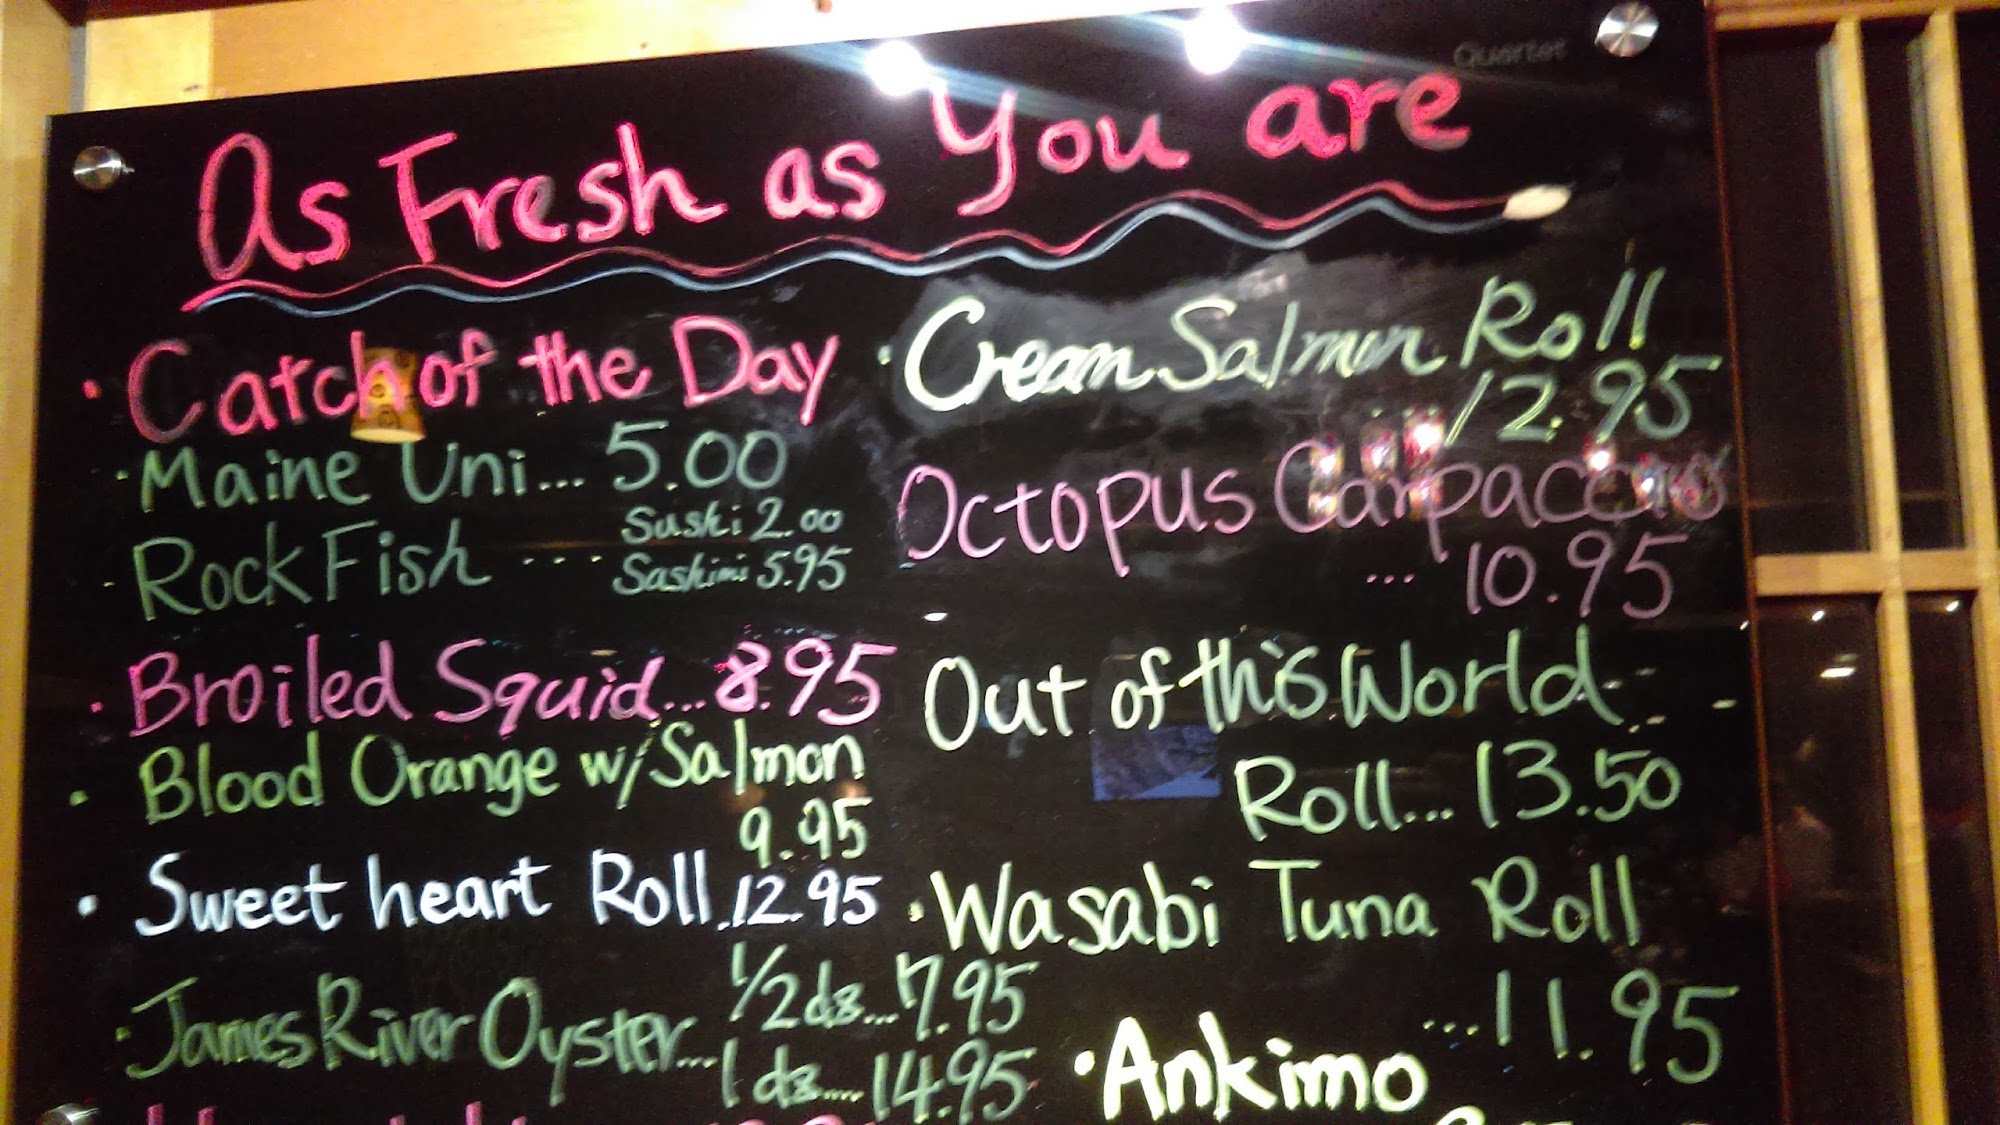 Quartet
As Fresh as You are
· Catch of the Day
· Maine Uni... 5.00
- Rock Fish .... Sushi 2.00
Sashimi 5.95
· Broiled Squid...8.95
· Blood Orange w/Salmon
9.95
· Sweet heart Roll..12.95
· James River Oyster... 1/2 ds...7.95
1 ds....14.95
· Cream Salmon Roll
12.95
Octopus Carpaccio
... 10.95
Out of this World
Roll...13.50
· Wasabi Tuna Roll
...11.95
· Ankimo